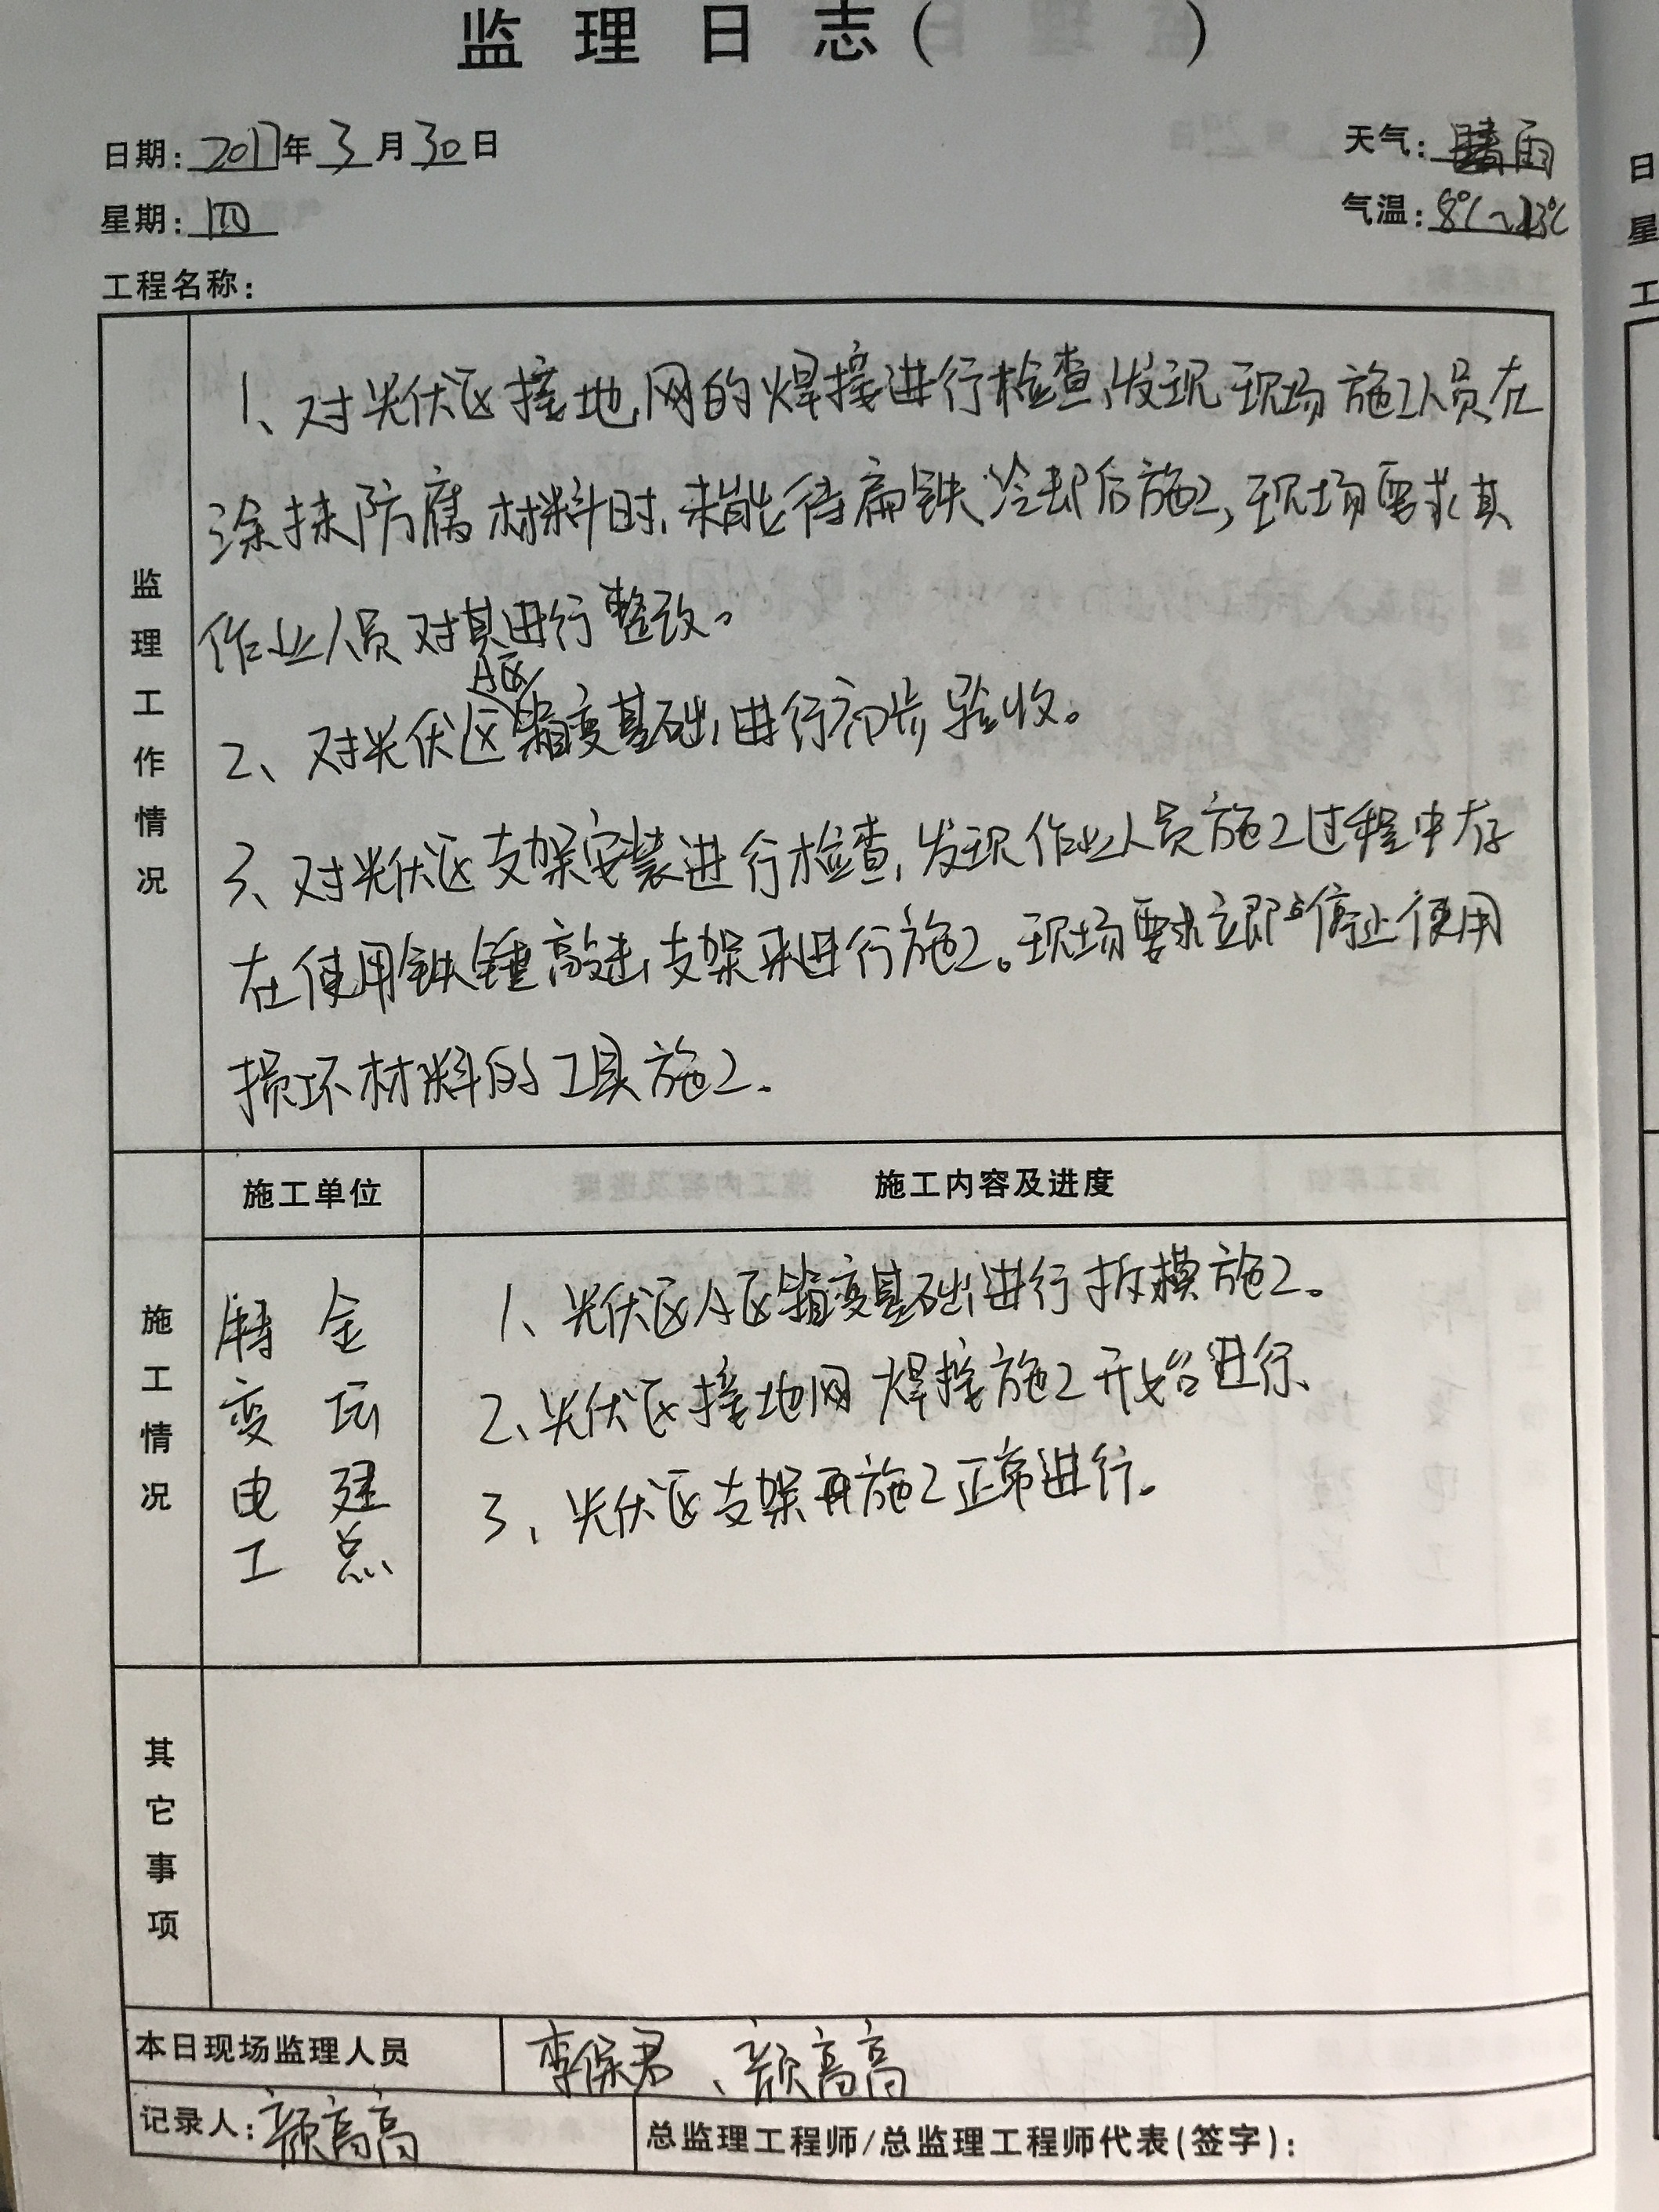 监理日志( )
日期:2017年3月30日
天气:雨
星期:四
气温:8℃~13℃
工程名称:
监理工作情况
1、对光伏区接地网的焊接进行检查,发现现场施工人员在
涂抹防腐材料时,未能待扁铁冷却后施工,现场要求其
作业人员对其进行整改。
A区
2、对光伏区箱变基础进行初步验收。
3、对光伏区支架安装进行检查,发现作业人员施工过程中存
在使用铁锤敲击支架来进行施工。现场要求立即停止使用
损坏材料的工具施工.
施工单位
施工内容及进度
施工情况
特变电工
金坛建总
1、光伏区A区箱变基础进行拆模施工。
2、光伏区接地网焊接施工开始进行、
3、光伏区支架施工正常进行.
其它事项
本日现场监理人员
李保君、颜高高
记录人:颜高高
总监理工程师/总监理工程师代表(签字):
日
星
工